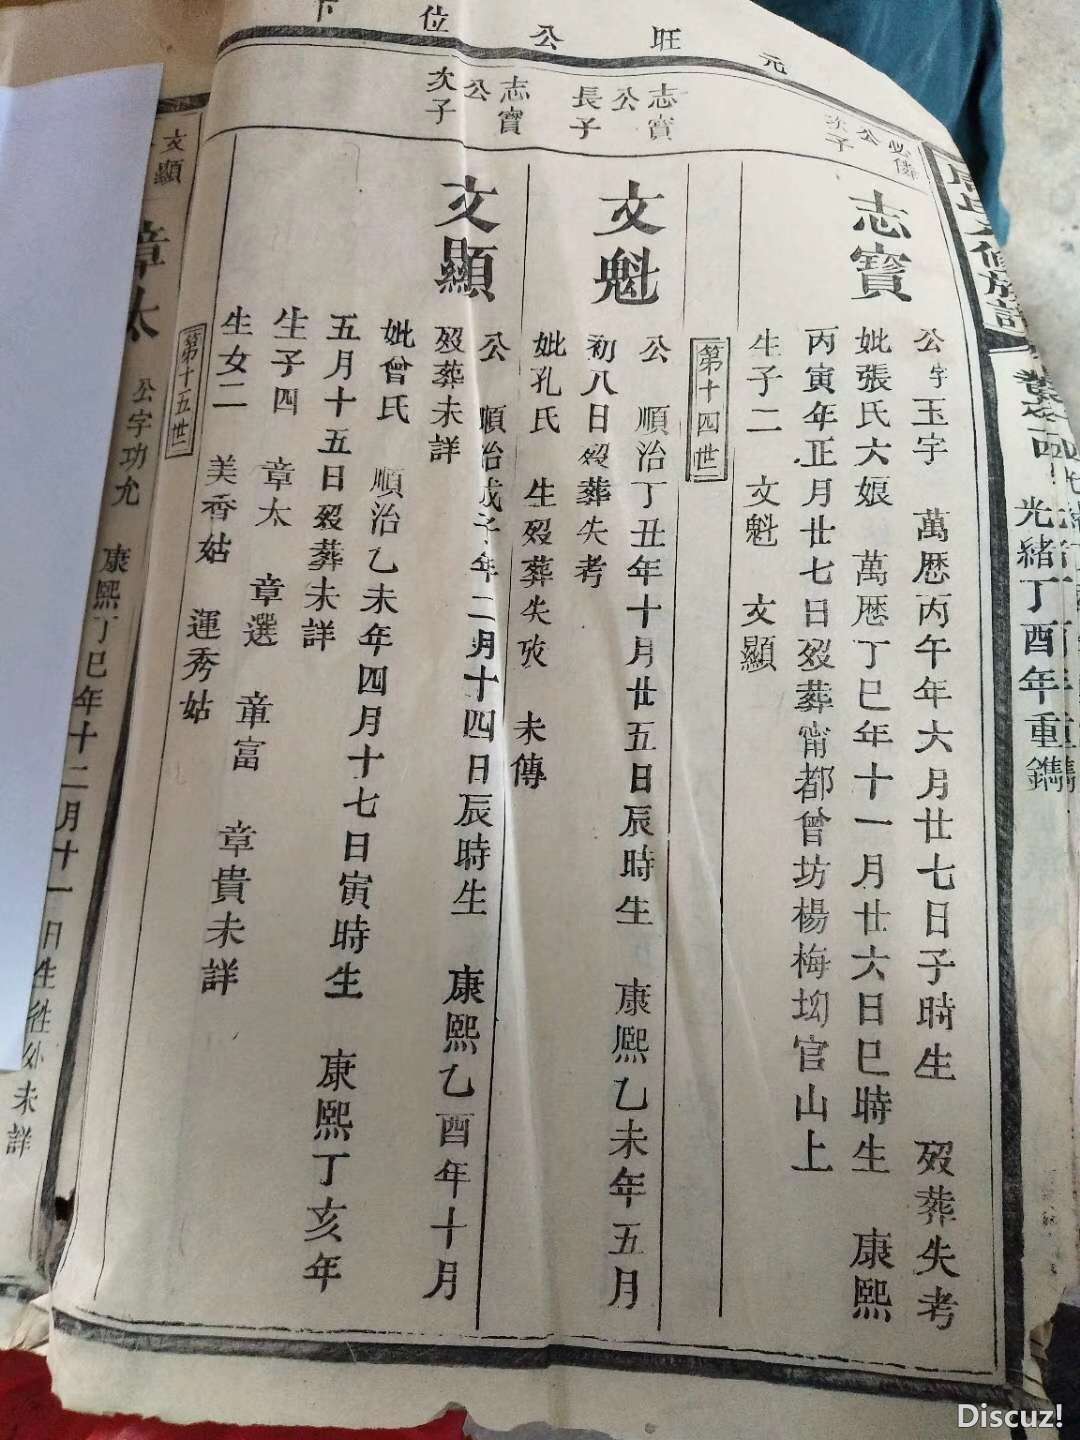 元旺公位下
光緒丁酉年重鐫
公次子
志寶
公字玉字 萬歷丙午年六月廿七日子時生 歿葬失考
妣張氏大娘 萬歷丁巳年十一月廿六日巳時生 康熙
丙寅年正月廿七日歿葬甯都曾坊楊梅坳官山上
生子二 文魁 文顯
第十四世
志寶公長子
文魁
公 順治丁丑年十月廿五日辰時生 康熙乙未年五月
初八日歿葬失考
妣孔氏 生歿葬失攷 未傳
志寶公次子
文顯
公 順治戊子年二月十四日辰時生 康熙乙酉年十月
歿葬未詳
妣曾氏 順治乙未年四月十七日寅時生 康熙丁亥年
五月十五日歿葬未詳
生子四 章太 章選 章富 章貴未詳
生女二 美香姑 運秀姑
第十五世
文顯
章太
公字功允 康熙丁巳年十二月十一日生 未詳
Discuz!